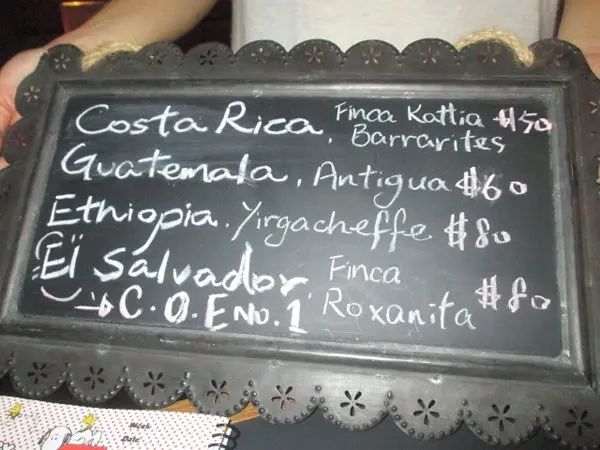 Costa Rica, Finca Kattia $50
Barrarites
Guatemala, Antigua $60
Ethiopia. Yirgacheffe $80
El Salvador, Finca
Roxanita $80
→ C.O.E No. 1
Week
Date